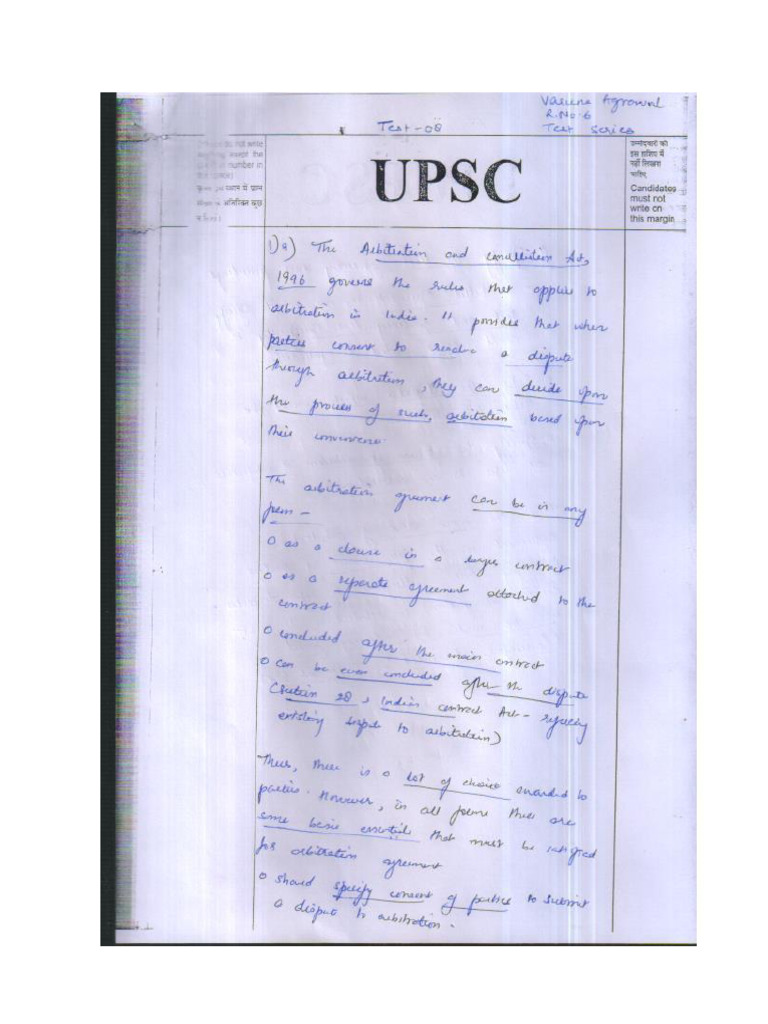 Varuna Agrawal
R.No-6
Test-08
Test Series
not write
except the
number in
उम्मीदवारों को
इस हाशिए में
नहीं लिखना
चाहिए
Candidates
must not
write on
this margin
UPSC
1)a) The Arbitration and Concilliation Act,
1996 governs the rules that applies to
arbitration in India. It provides that when
parties consent to resolve a dispute
through arbitration, they can decide upon
the process of such, arbitration based upon
their convenience.
The arbitration agreement can be in any
form -
o as a clause in a larger contract
o as a separate agreement attached to the
contract
o concluded after the main contract
o can be even concluded after the dispute
(Section 28, Indian Contract Act - referring
existing dispute to arbitration)
Thus, there is a lot of choice awarded to
parties. However, in all forms there are
some basic essentials that must be satisfied
for arbitration agreement
o should specify consent of parties to submit
a dispute to arbitration.